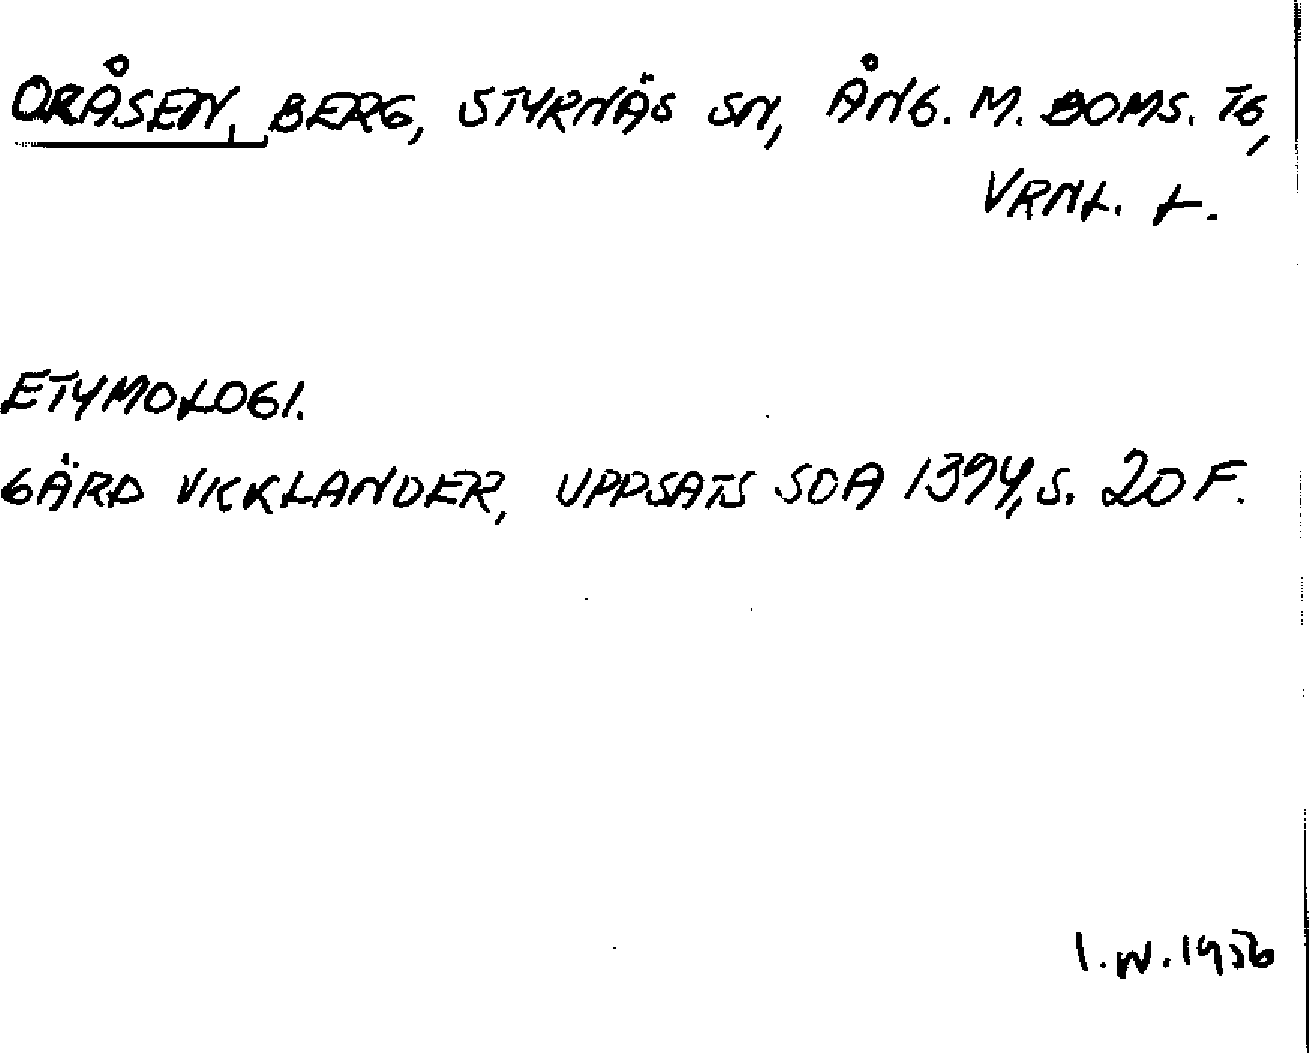 ORÅSEN, BERG, STYRNÄS SN, ÅNG. M. BOMS. TG,
VRNL. L.
ETYMOLOGI.
GÄRD VIKLANDER, UPPSATS SOA 1394, S. 20 F.
I.W. 1956